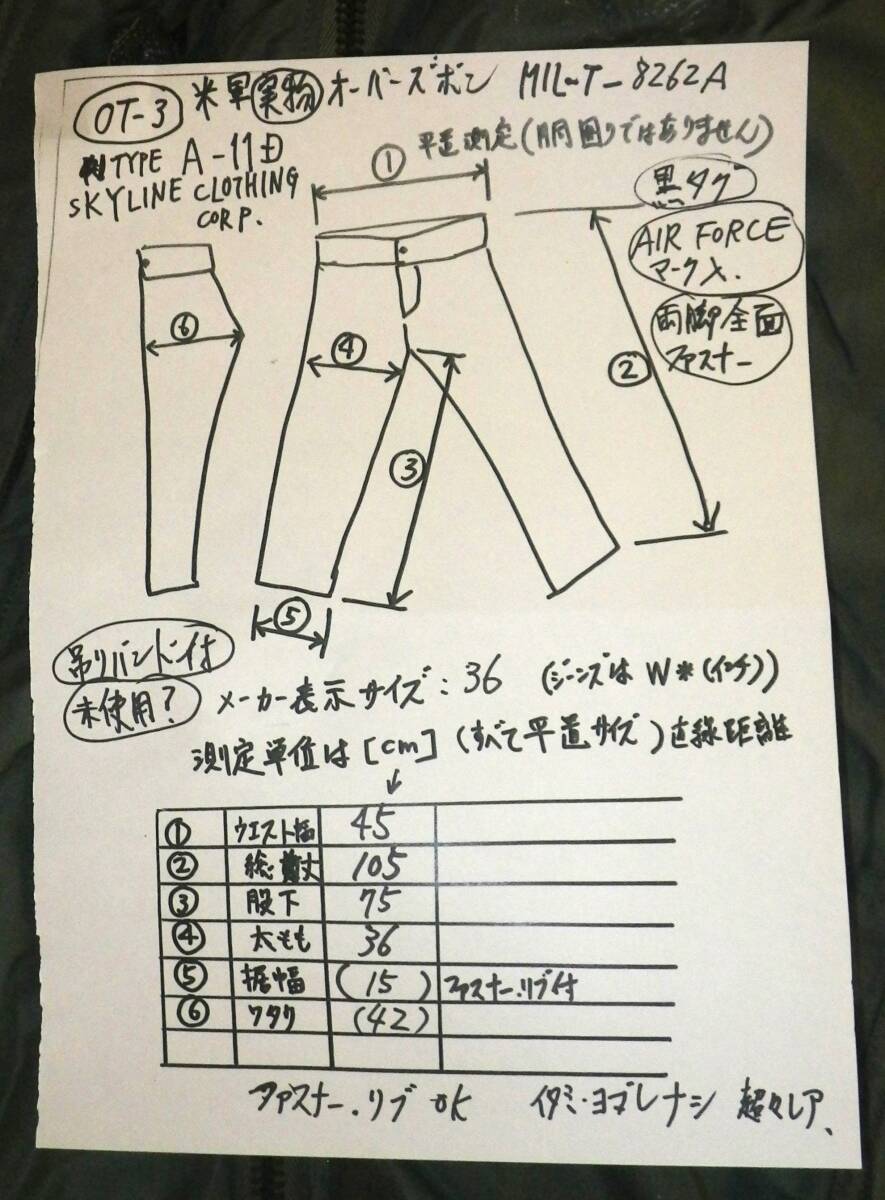 OT-3 米軍実物 オーバーズボン MIL-T-8262A
TYPE A-11D
SKYLINE CLOTHING
CORP.
① 平置測定(胴囲りではありません)
黒タグ
AIR FORCE
マーク入.
両脚全面
ファスナー
⑥
④
②
③
⑤
吊りバンド付
未使用?
メーカー表示サイズ:36 (ジーンズはW*(インチ))
測定単位は[cm](すべて平置サイズ)直線距離
① ウエスト幅 45
② 総丈 105
③ 股下 75
④ 太もも 36
⑤ 裾幅 (15) ファスナー.リブ付
⑥ ワタリ (42)
ファスナー.リブ OK イタミ・ヨゴレナシ 超々レア、